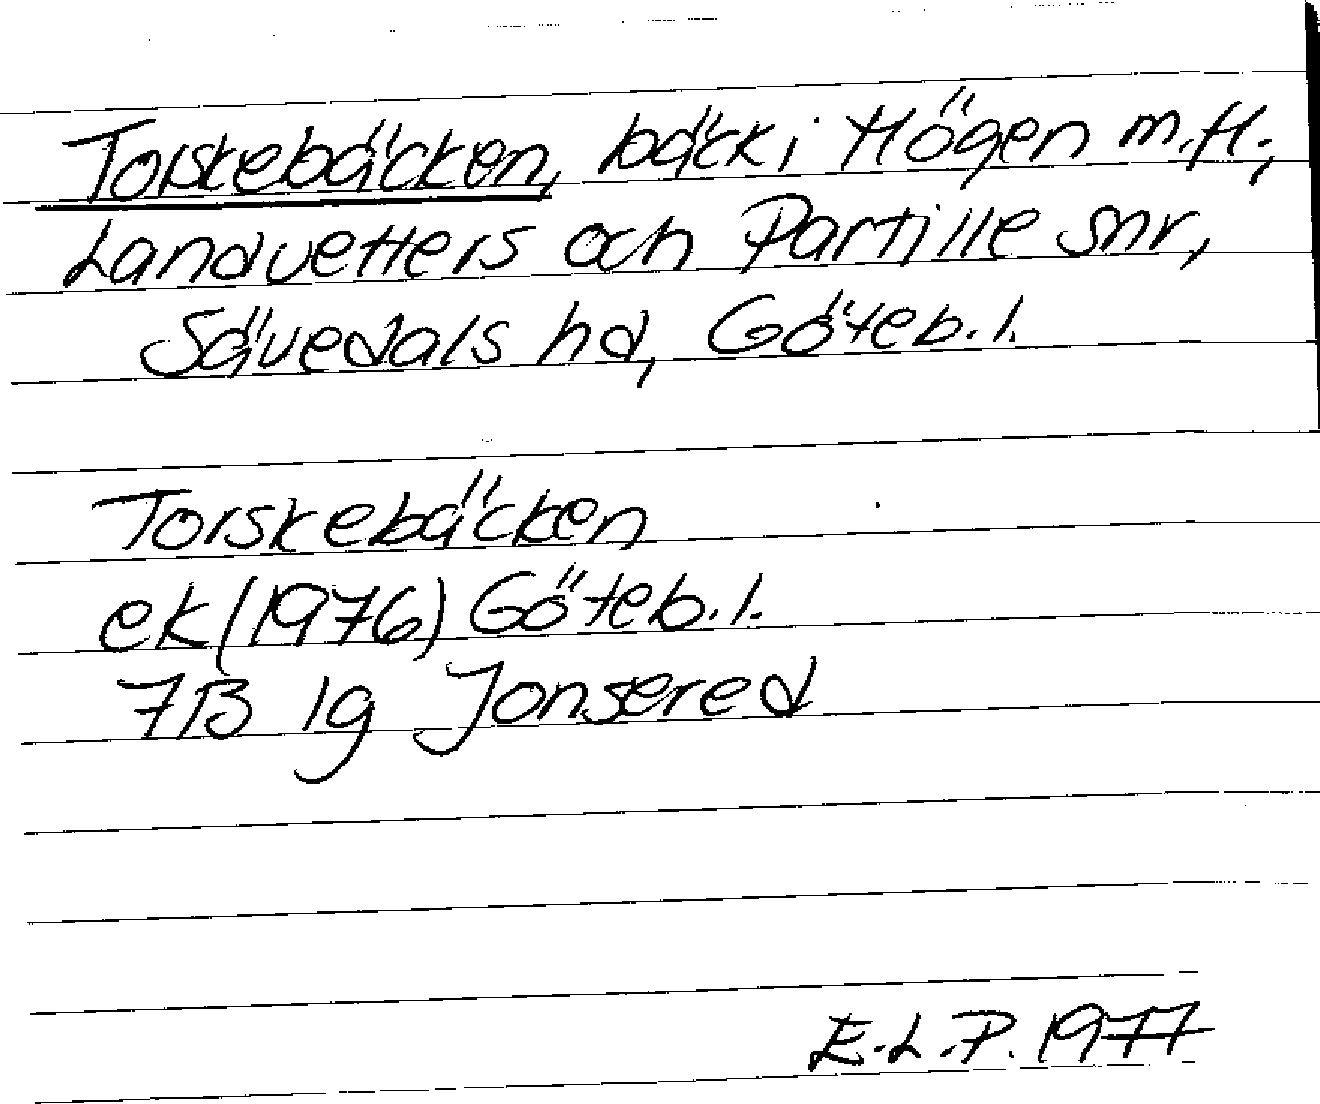 Torskebäcken, bäck i Högen m.fl.;
Landvetters och Partille snr,
Sävedals hd, Göteb. l.
Torskebäcken
ek (1976) Göteb. l.
7B 1g Jonsered
E.L.P. 1977